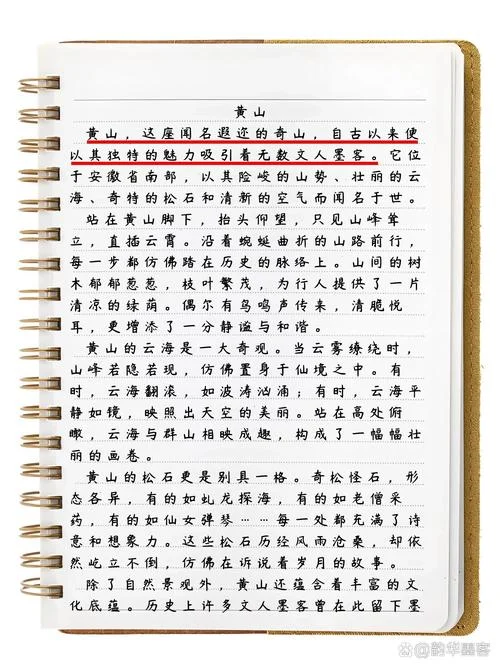 黄山
黄山，这座闻名遐迩的奇山，自古以来便
以其独特的魅力吸引着无数文人墨客。它位
于安徽省南部，以其险峻的山势、壮丽的云
海、奇特的松石和清新的空气而闻名于世。
站在黄山脚下，抬头仰望，只见山峰耸
立，直插云霄。沿着蜿蜒曲折的山路前行，
每一步都仿佛踏在历史的脉络上。山间的树
木郁郁葱葱，枝叶繁茂，为行人提供了一片
清凉的绿荫。偶尔有鸟鸣声传来，清脆悦
耳，更增添了一分静谧与和谐。
黄山的云海是一大奇观。当云雾缭绕时，
山峰若隐若现，仿佛置身于仙境之中。有
时，云海翻滚，如波涛汹涌；有时，云海平
静如镜，映照出天空的美丽。站在高处俯
瞰，云海与群山相映成趣，构成了一幅幅壮
丽的画卷。
黄山的松石更是别具一格。奇松怪石，形
态各异，有的如虬龙探海，有的如老僧采
药，有的如仙女弹琴……每一处都充满了诗
意和想象力。这些松石历经风雨沧桑，却依
然屹立不倒，仿佛在诉说着岁月的故事。
除了自然景观外，黄山还蕴含着丰富的文
化底蕴。历史上许多文人墨客曾在此留下墨
韵华墨客